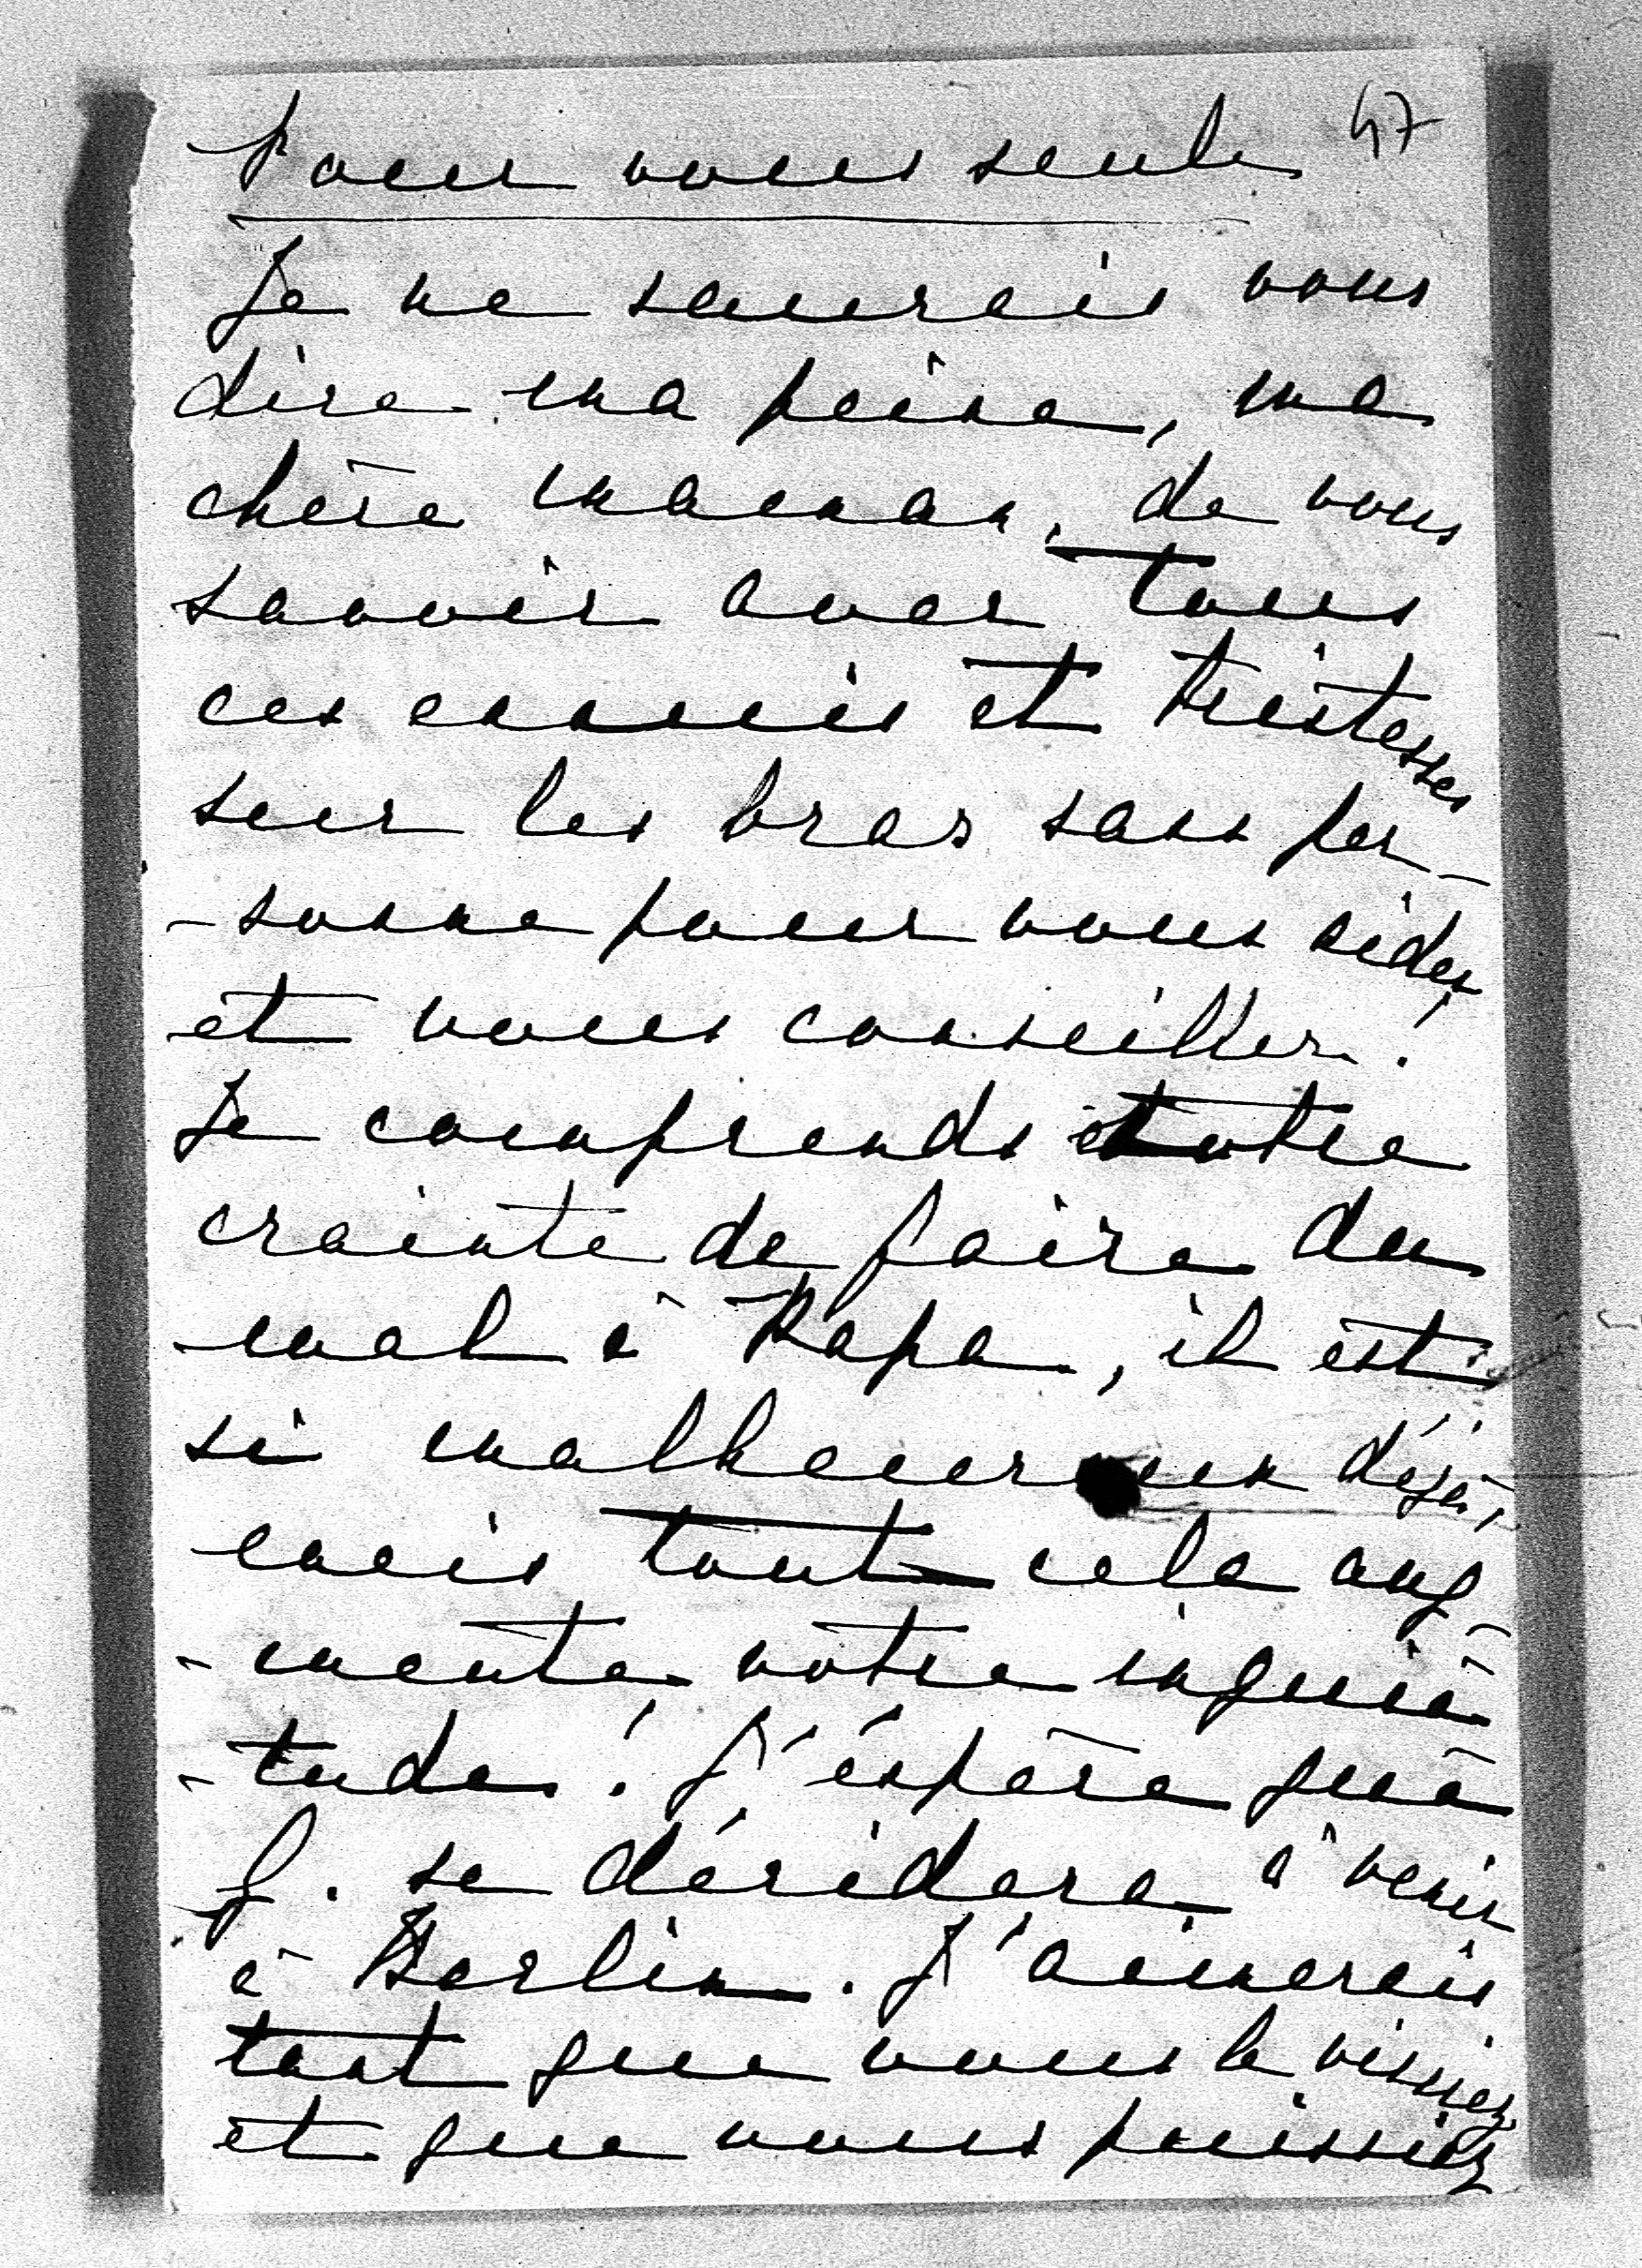 47
Pour vous seule
Je ne saurais vous
dire ma peine, ma
chère maman, de vous
savoir avec tous
ces ennuis et tristesses
sur les bras sans per-
-sonne pour vous aider
et vous conseiller!
Je comprends votre
crainte de faire du
mal à Papa, il est
si malheureux déjà,
mais tout cela aug-
-mente notre inquié-
-tude! J'espère que
f. se décidera à venir
à Berlin. J'aimerais
tant que vous le vissiez
et que vous puissiez